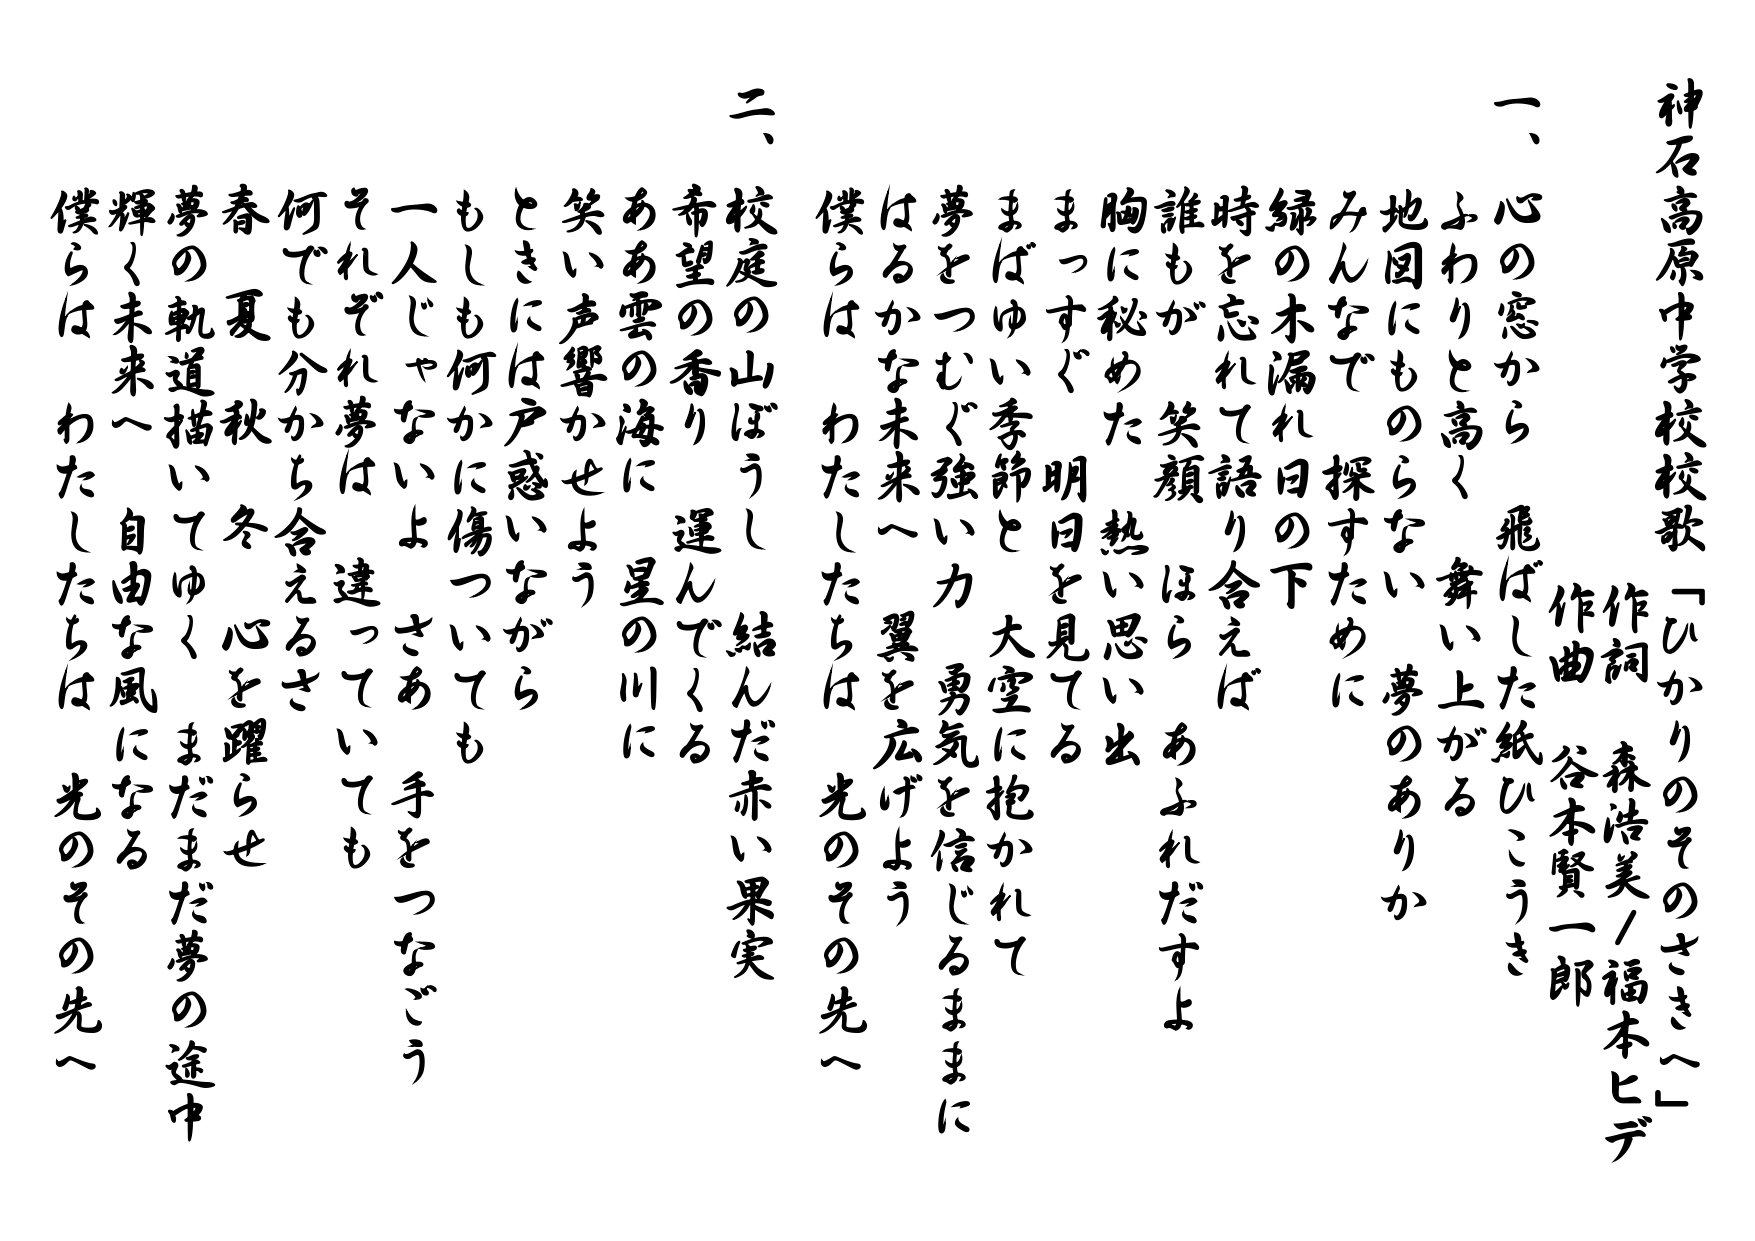 神石高原中学校校歌「ひかりのそのさきへ」
作詞　森浩美／福本ヒデ
作曲　谷本賢一郎
一、　心の窓から　飛ばした紙ひこうき
ふわりと高く　舞い上がる
地図にものらない　夢のありか
みんなで　探すために
緑の木漏れ日の下
時を忘れて語り合えば
誰もが　笑顔　ほら　あふれだすよ
胸に秘めた　熱い思い出
まっすぐ　明日を見てる
まばゆい季節と　大空に抱かれて
夢をつむぐ強い力　勇気を信じるままに
はるかな未来へ　翼を広げよう
僕らは　わたしたちは　光のその先へ
二、　校庭の山ぼうし　結んだ赤い果実
希望の香り　運んでくる
ああ雲の海に　星の川に
笑い声響かせよう
ときには戸惑いながら
もしも何かに傷ついても
一人じゃないよ　さあ　手をつなごう
それぞれ夢は　違っていても
何でも分かち合えるさ
春　夏　秋　冬　心を躍らせ
夢の軌道描いてゆく　まだまだ夢の途中
輝く未来へ　自由な風になる
僕らは　わたしたちは　光のその先へ